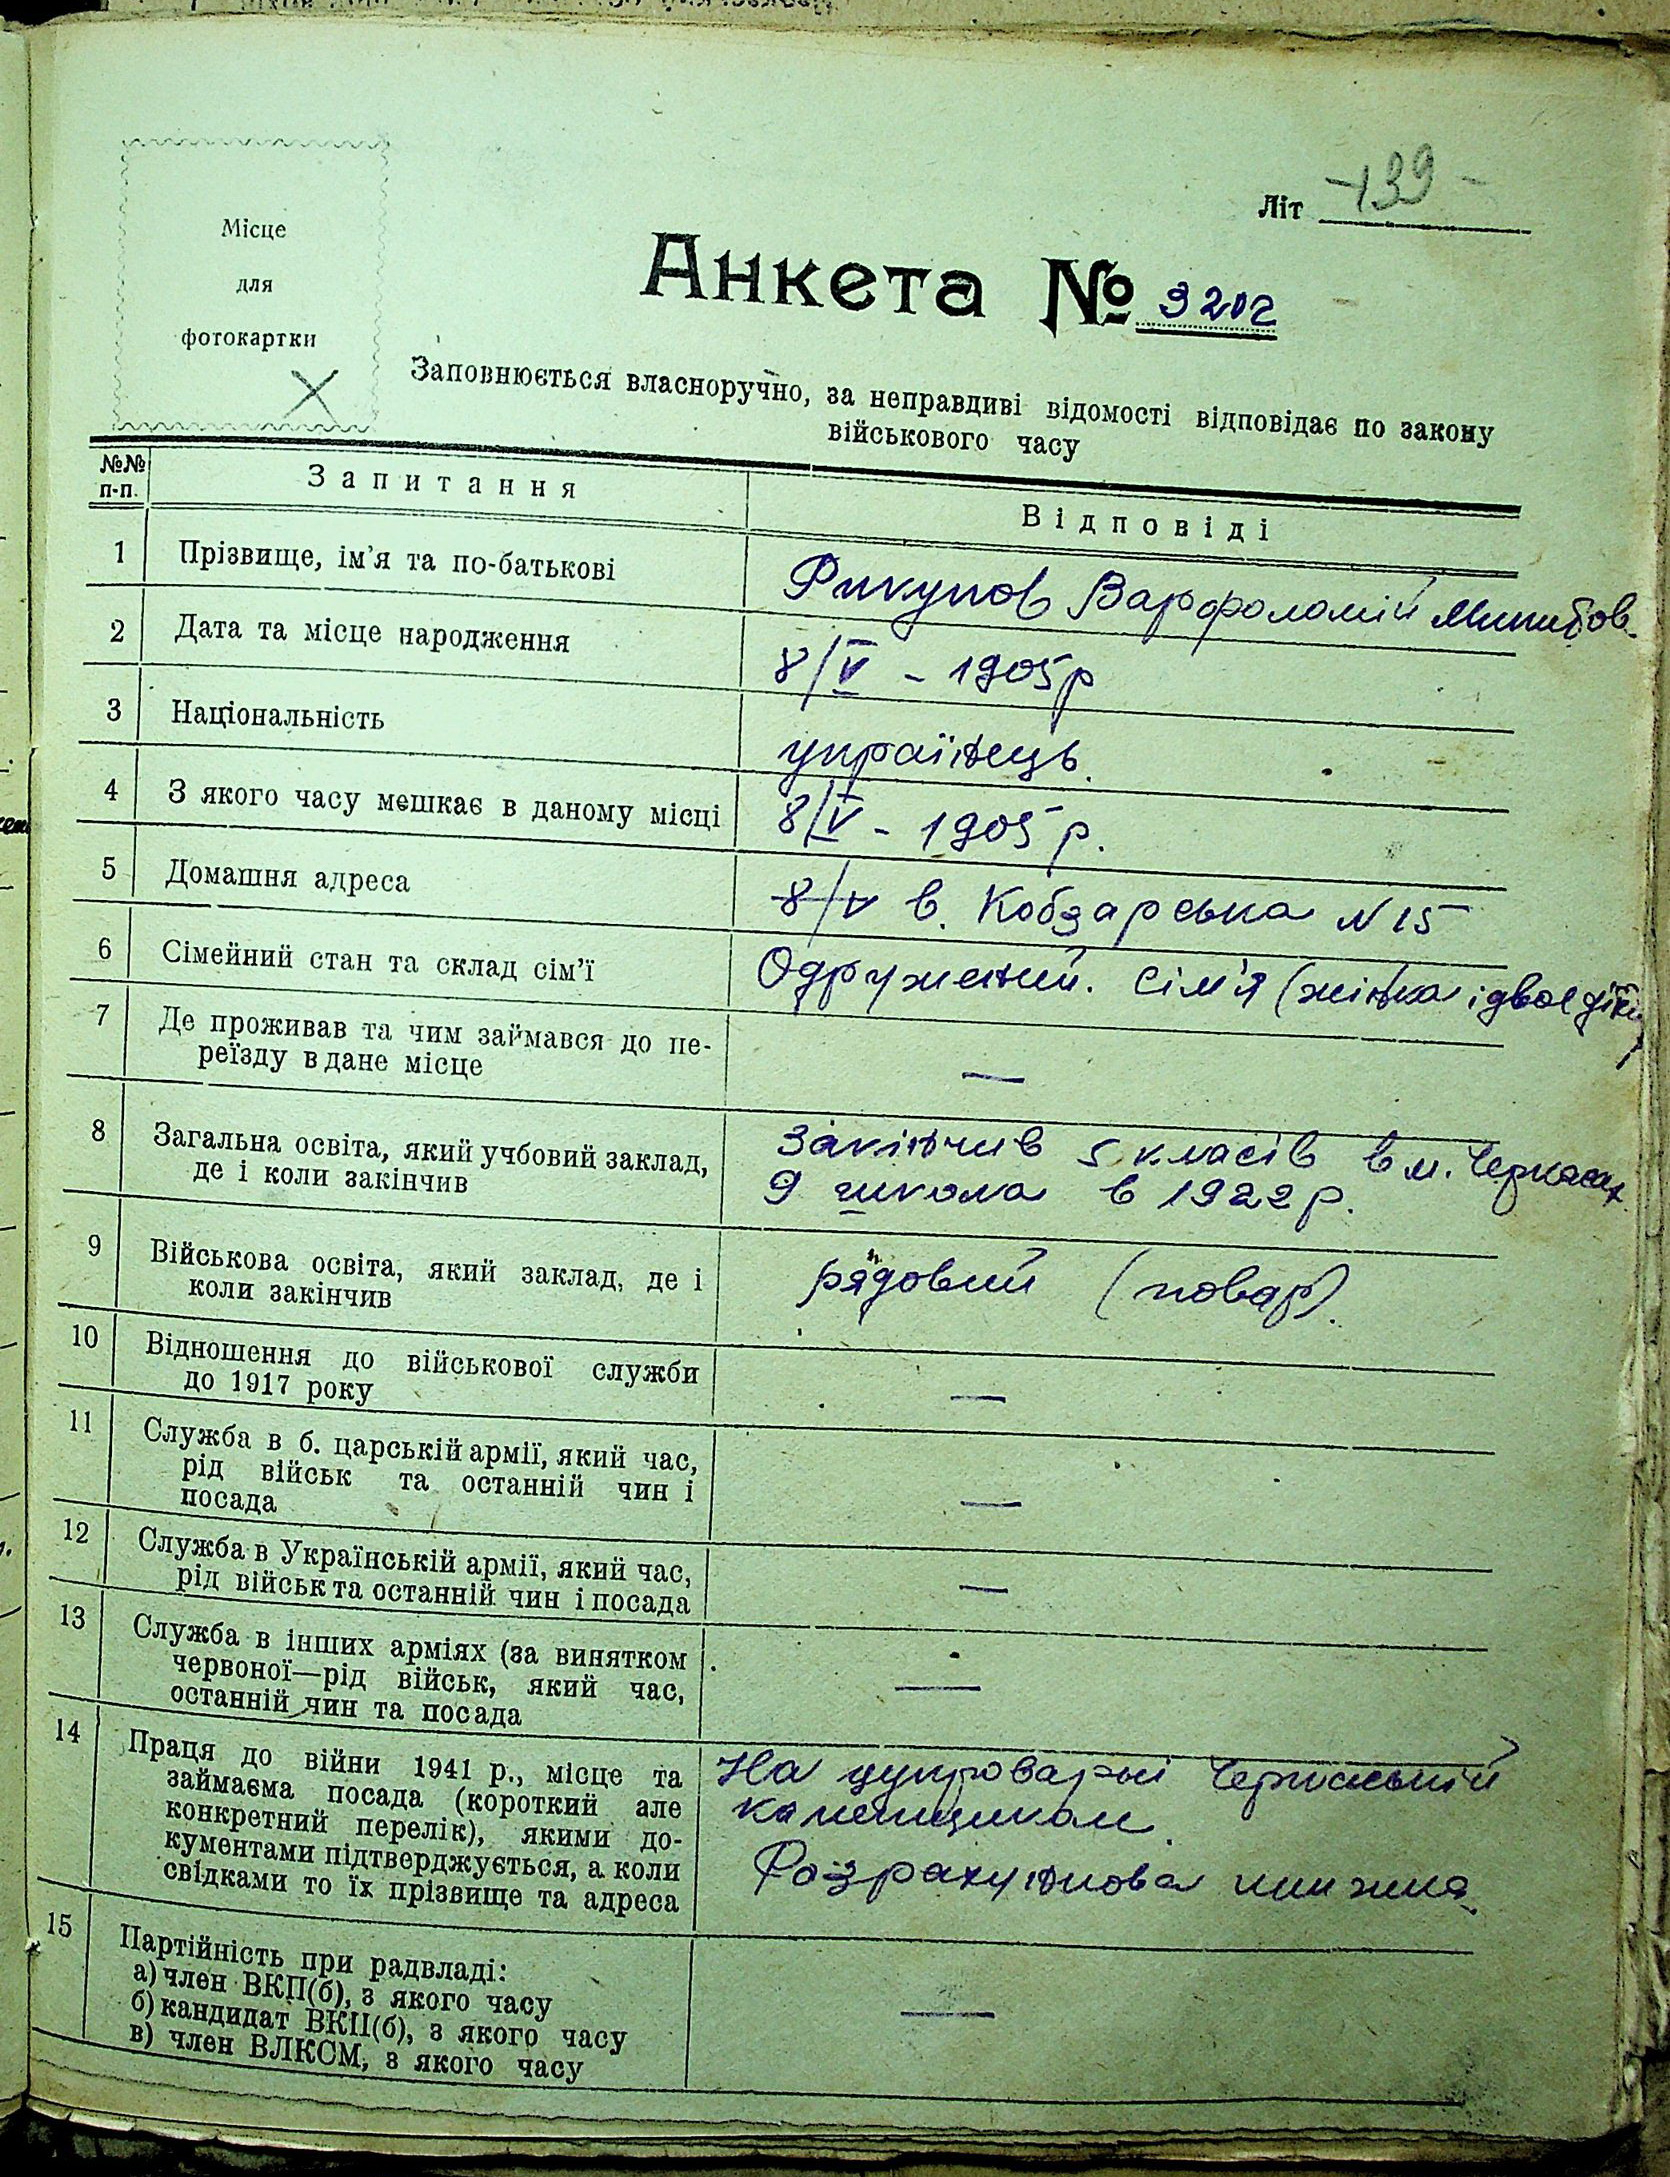 Літ -139-
Місце
для
фотокартки
Анкета № 3202
Заповнюється власноручно, за неправдиві відомості відповідає по закону
військового часу
№№
п-п.
Запитання
Відповіді
1 Прізвище, ім'я та по-батькові
Варфоломій
2 Дата та місце народження
8/V - 1905р
3 Національність
українець.
4 З якого часу мешкає в даному місці
8/V - 1905 р.
5 Домашня адреса
8/V в. Кобзарська N 15
6 Сімейний стан та склад сім'ї
Одружений. Сім'я (жінка і двоє діти)
7 Де проживав та чим займався до пе-
реїзду в дане місце
—
8 Загальна освіта, який учбовий заклад,
де і коли закінчив
Закінчив 5 класів в м. Черкасах
9 школа в 1922 р.
9 Військова освіта, який заклад, де і
коли закінчив
рядовий (повар).
10 Відношення до військової служби
до 1917 року
—
11 Служба в б. царській армії, який час,
рід військ та останній чин і
посада
—
12 Служба в Українській армії, який час,
рід військ та останній чин і посада
—
13 Служба в інших арміях (за винятком
червоної—рід військ, який час,
останній чин та посада
—
14 Праця до війни 1941 р., місце та
займаєма посада (короткий але
конкретний перелік), якими до-
кументами підтверджується, а коли
свідками то їх прізвище та адреса
На цукроварні Черкаській
каменщиком.
Розрахункова книжка.
15 Партійність при радвладі:
а) член ВКП(б), з якого часу
б) кандидат ВКП(б), з якого часу
в) член ВЛКСМ, з якого часу
—